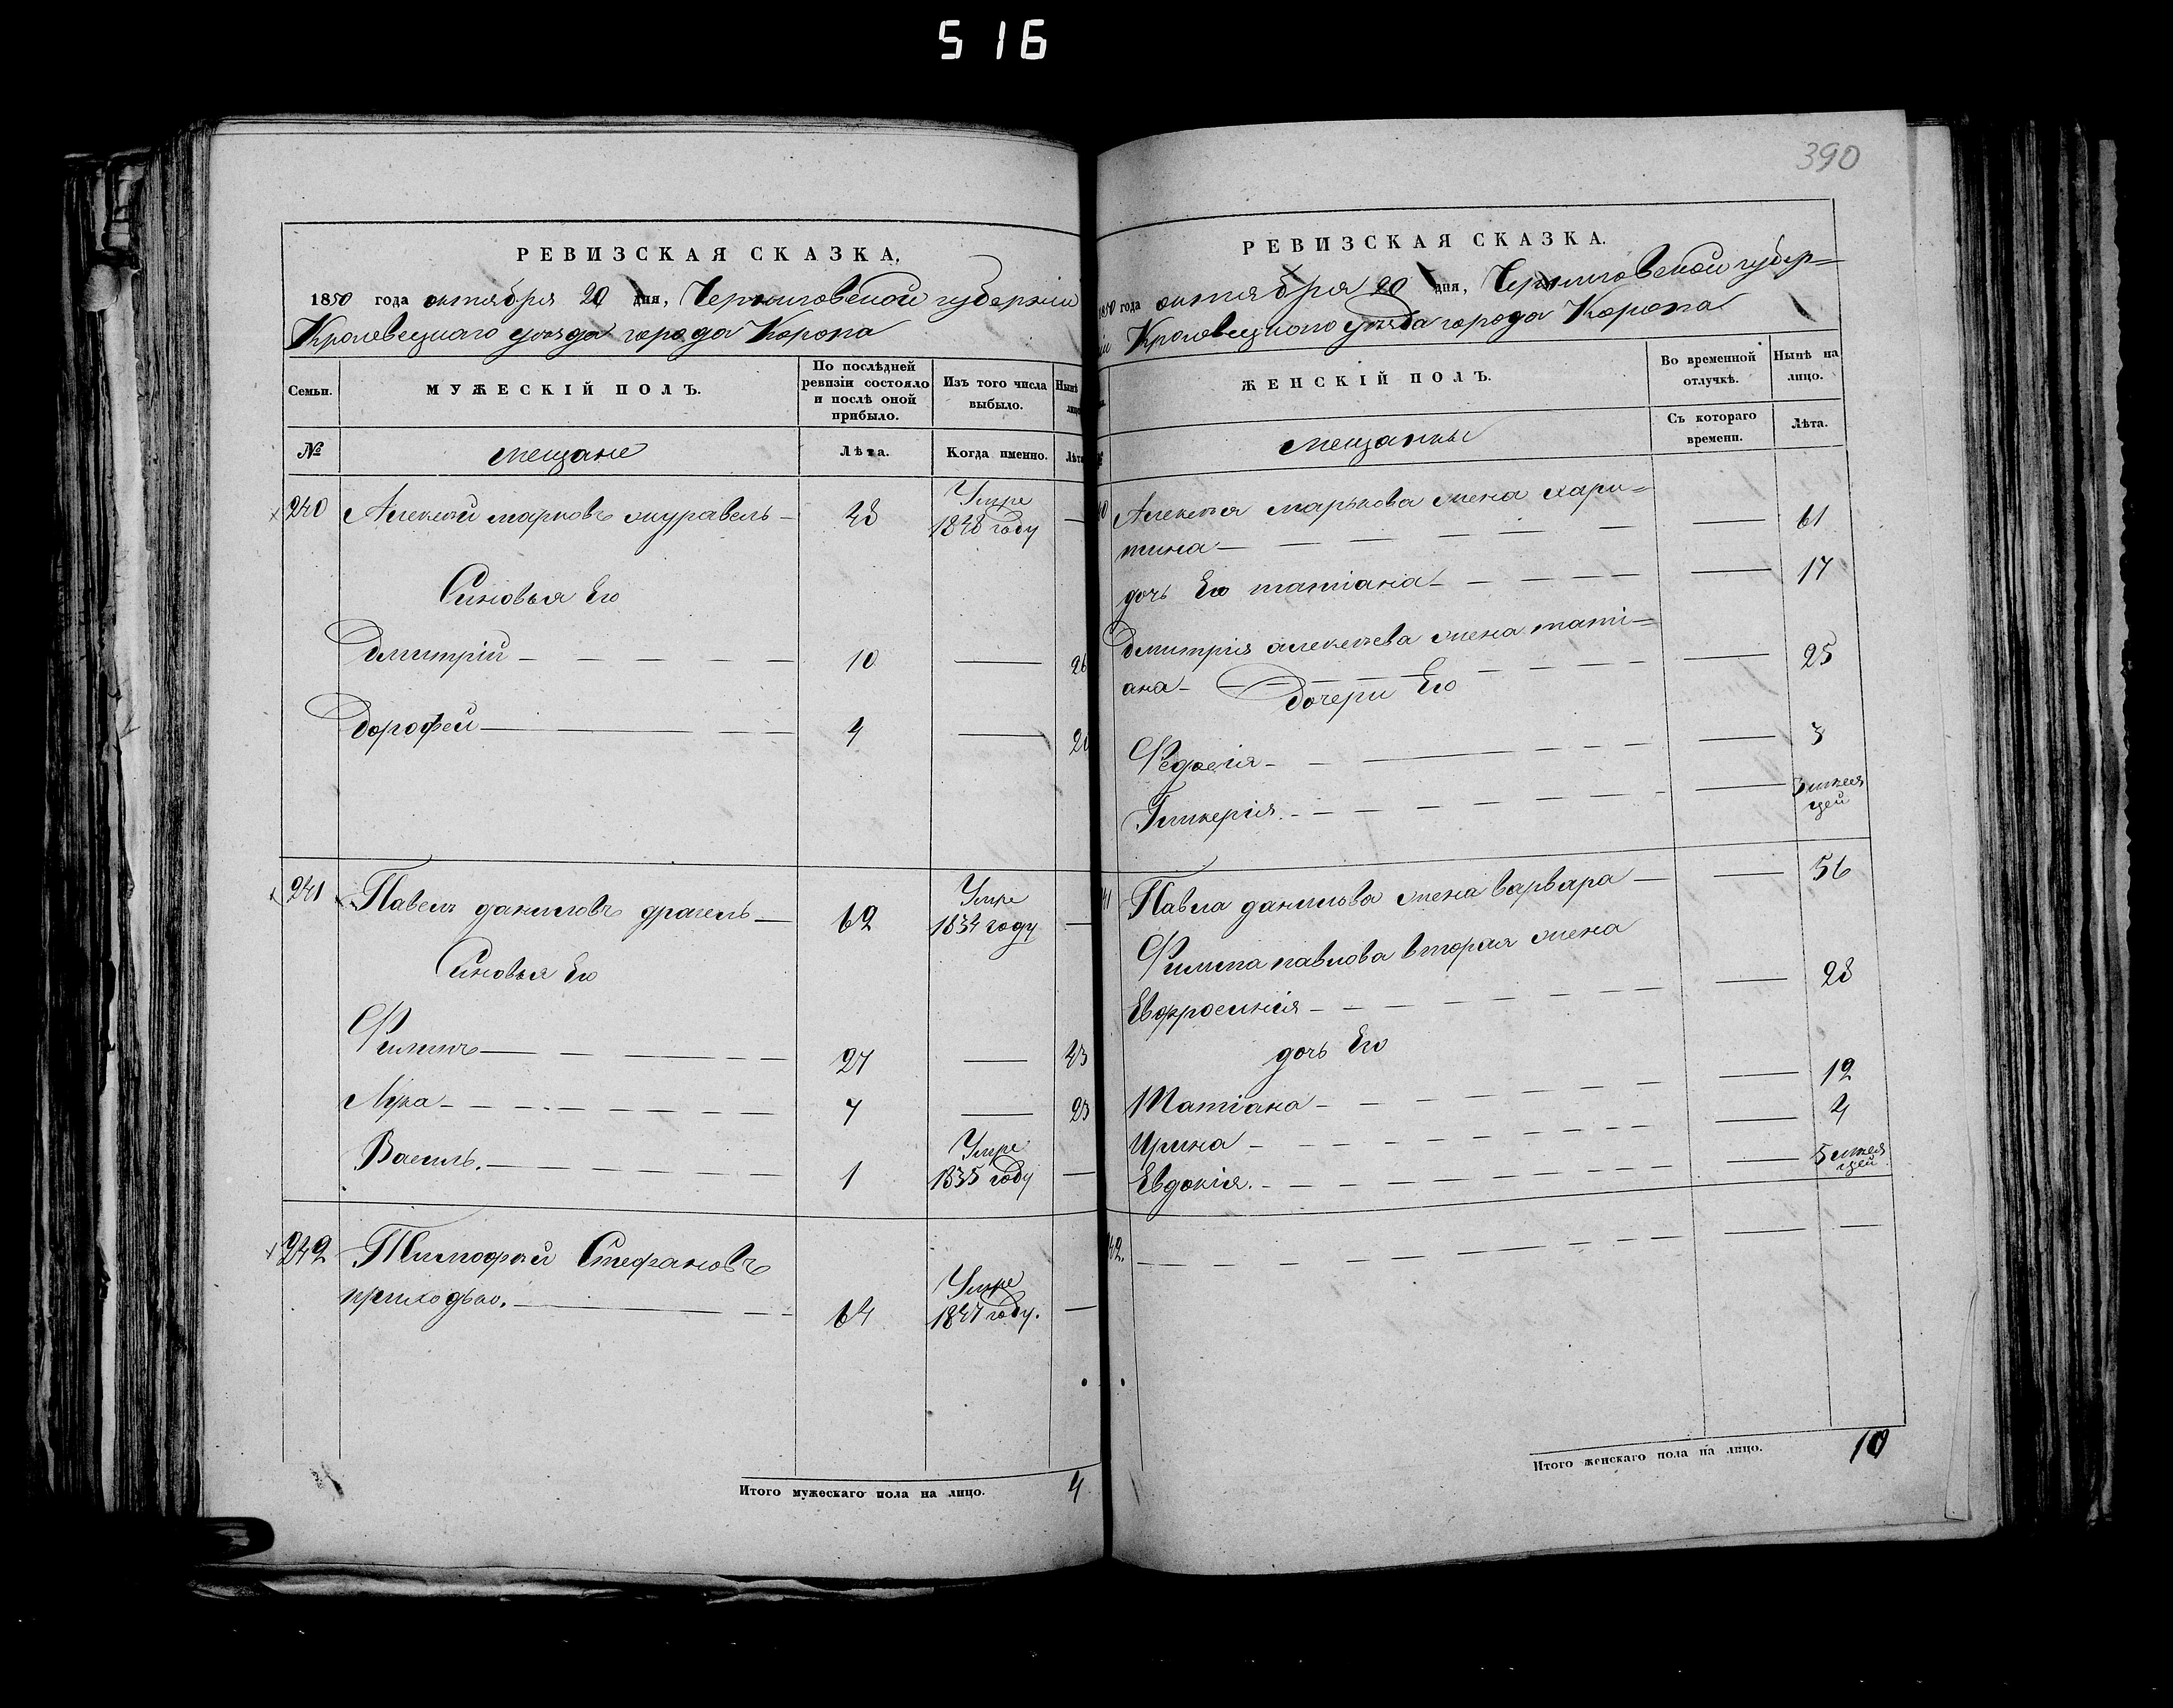 516
390
РЕВИЗСКАЯ СКАЗКА,
1850 года октября 20 дня, Черниговской губерніи
Кролевецкаго уезда города Коропа
Семьи.
МУЖЕСКІЙ ПОЛЪ.
По послѣдней ревизіи состояло и послѣ оной прибыло.
Изъ того числа выбыло.
Нынѣ
лицо
№
мещане
Лѣта.
Когда именно.
Лѣта
240 Алексей марковъ журавель — 48 Умре 1848 году —
Синовья Его
Дмитрій — — — — — 10 — 26
Дорофей — — — — 4 — 20
241 Павелъ даниловъ драгель — 62 Умре 1834 году —
Синовья Его
Филипъ — — — — — 27 — 43
Лука — — — — — 7 — 23
Василь. — — — — — 1 Умре 1835 году —
242 Тимофей Стефановъ
приходько. — — — 64 Умре 1847 году. —
Итого мужескаго пола на лицо. 4
РЕВИЗСКАЯ СКАЗКА.
1850 года октября 20 дня, Черниговской губер=
ніи Кролевецкаго уезда города Коропа
ЖЕНСКІЙ ПОЛЪ.
Во временной отлучкѣ.
Нынѣ на лицо.
№
мещанки
Съ котораго времени.
Лѣта.
40 Алексея марькова жена хари=
тина — — — — — — 61
дочь Его татіана — — — — 17
Дмитрія алексеева жена тати=
ана — — — — — — 25
Дочери Его
Федосія — — — — — 3
Гликерія. — — — — — 3 месяцей
41 Павла данилова жена варвара — — 56
Филипа павлова вторая жена
Евфросинія — — — — — 28
дочь Его
Татіана — — — — — 12
Ирина — — — — — 4
Евдокія. — — — — — 5 месяцей
42. — — — — — — —
Итого женскаго пола на лицо. 10